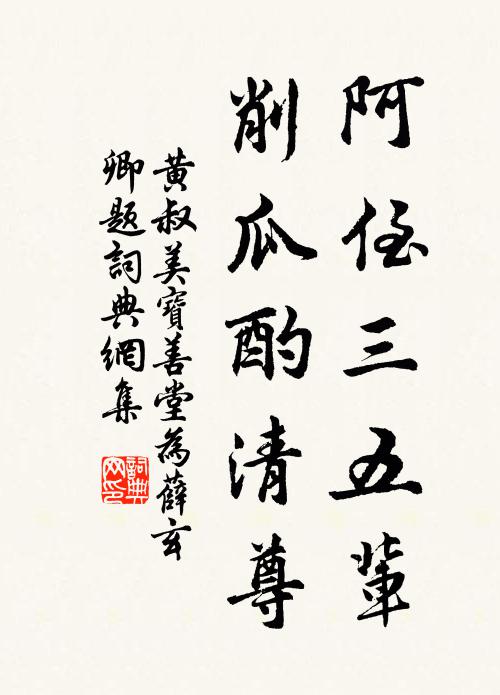 阿侄三五輩
削瓜酌清尊
黄叔美寶善堂為薛玄
卿題詞典網集
詞典
网印